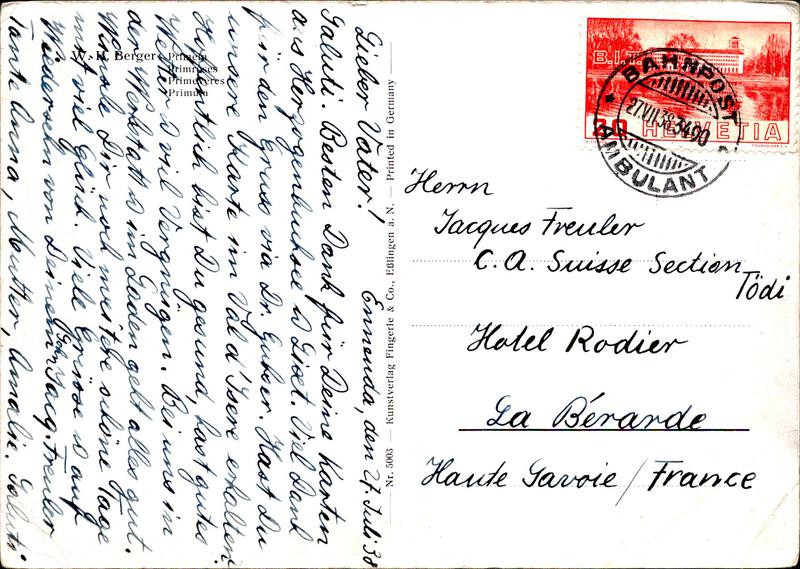 Ennenda, den 27. Juli 38
Lieber Vater!
Saluti. Besten Dank für Deine Karten
aus Herzogenbuchsee & Viel Dank
für den Gruss via Dr. Hast Du
unsere Karte im Val d'Isere erhalten.
Hoffentlich bist Du gesund, hast gutes
Wetter & viel Vergnügen. Bei uns in
der Werkstatt & im Laden geht alles gut.
Wünsche Dir noch weitere schöne Tage
mit viel Glück. Viele Grüsse & auf
Wiedersehn von Deinem Sohn Jacq. Freuler
Tante Anna, Mutter, Amalie. Saluti
W. H. Berger
Primeln
Primroses
Primevères
Primula
Nr. 5003 — Kunstverlag Fingerle & Co., Eßlingen a. N. — Printed in Germany
B.I.T.
20 HELVETIA
COURVOISIER S.A.
BAHNPOST
27.VII.38 3490
AMBULANT
Herrn
Jacques Freuler
C. A. Suisse Section
Tödi
Hotel Rodier
La Bérarde
Haute Savoie / France